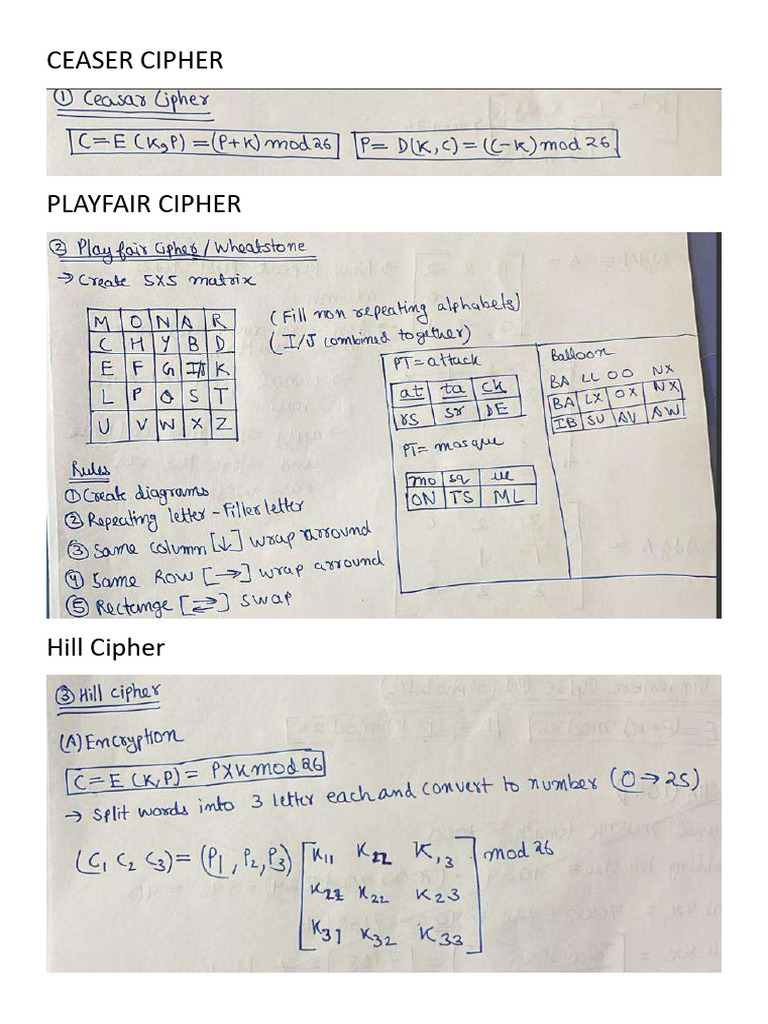 CEASER CIPHER
① Ceasar Cipher
C=E(K,P)=(P+K)mod26 P= D(K,C)=(C-K)mod26
PLAYFAIR CIPHER
② Playfair Cipher/Wheatstone
→ Create 5X5 matrix
M O N A R
C H Y B D
E F G I/J K
L P Q S T
U V W X Z
(Fill non repeating alphabets)
(I/J combined together)
PT=attack
at ta ck
rs sr DE
PT= mosque
mo sq ue
ON TS ML
Balloon
BA LL OO NX
BA LX OX NX
IB SU AV AW
Rules
① Create diagrams
② Repeating letter - Filler letter
③ Same column [↓] wrap arround
④ Same Row [→] wrap arround
⑤ Rectange [⇄] swap
Hill Cipher
③ Hill cipher
(A) Encryption
C=E(K,P)= PXKmod26
→ split words into 3 letter each and convert to number (0→25)
(C1 C2 C3)=(P1, P2, P3) [K11 K22 K,3 mod 26
K21 K22 K23
K31 K32 K33]